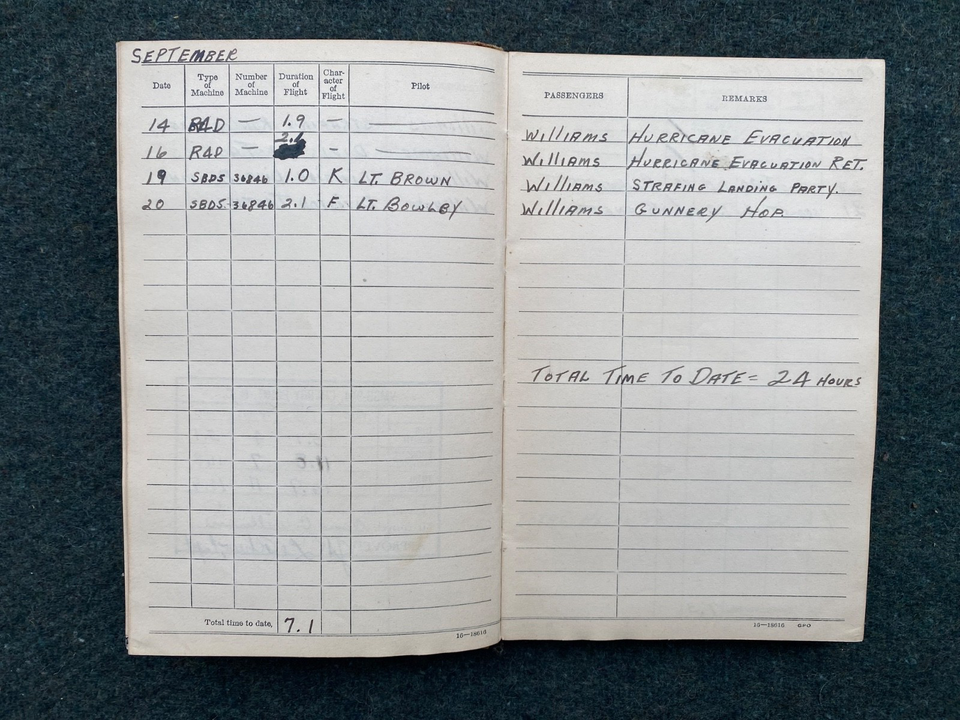 SEPTEMBER
Date Type of Machine Number of Machine Duration of Flight Character of Flight Pilot PASSENGERS REMARKS
14 R4D — 1.9 — — Williams HURRICANE EVACUATION
16 R4D — - — Williams HURRICANE EVACUATION RET.
19 SBD5 36846 1.0 K LT. BROWN Williams STRAFING LANDING PARTY.
20 SBD5 36846 2.1 F LT. BOWLBY Williams GUNNERY HOP
TOTAL TIME TO DATE = 24 HOURS
Total time to date, 7.1
16—18616
16—18616 GPO